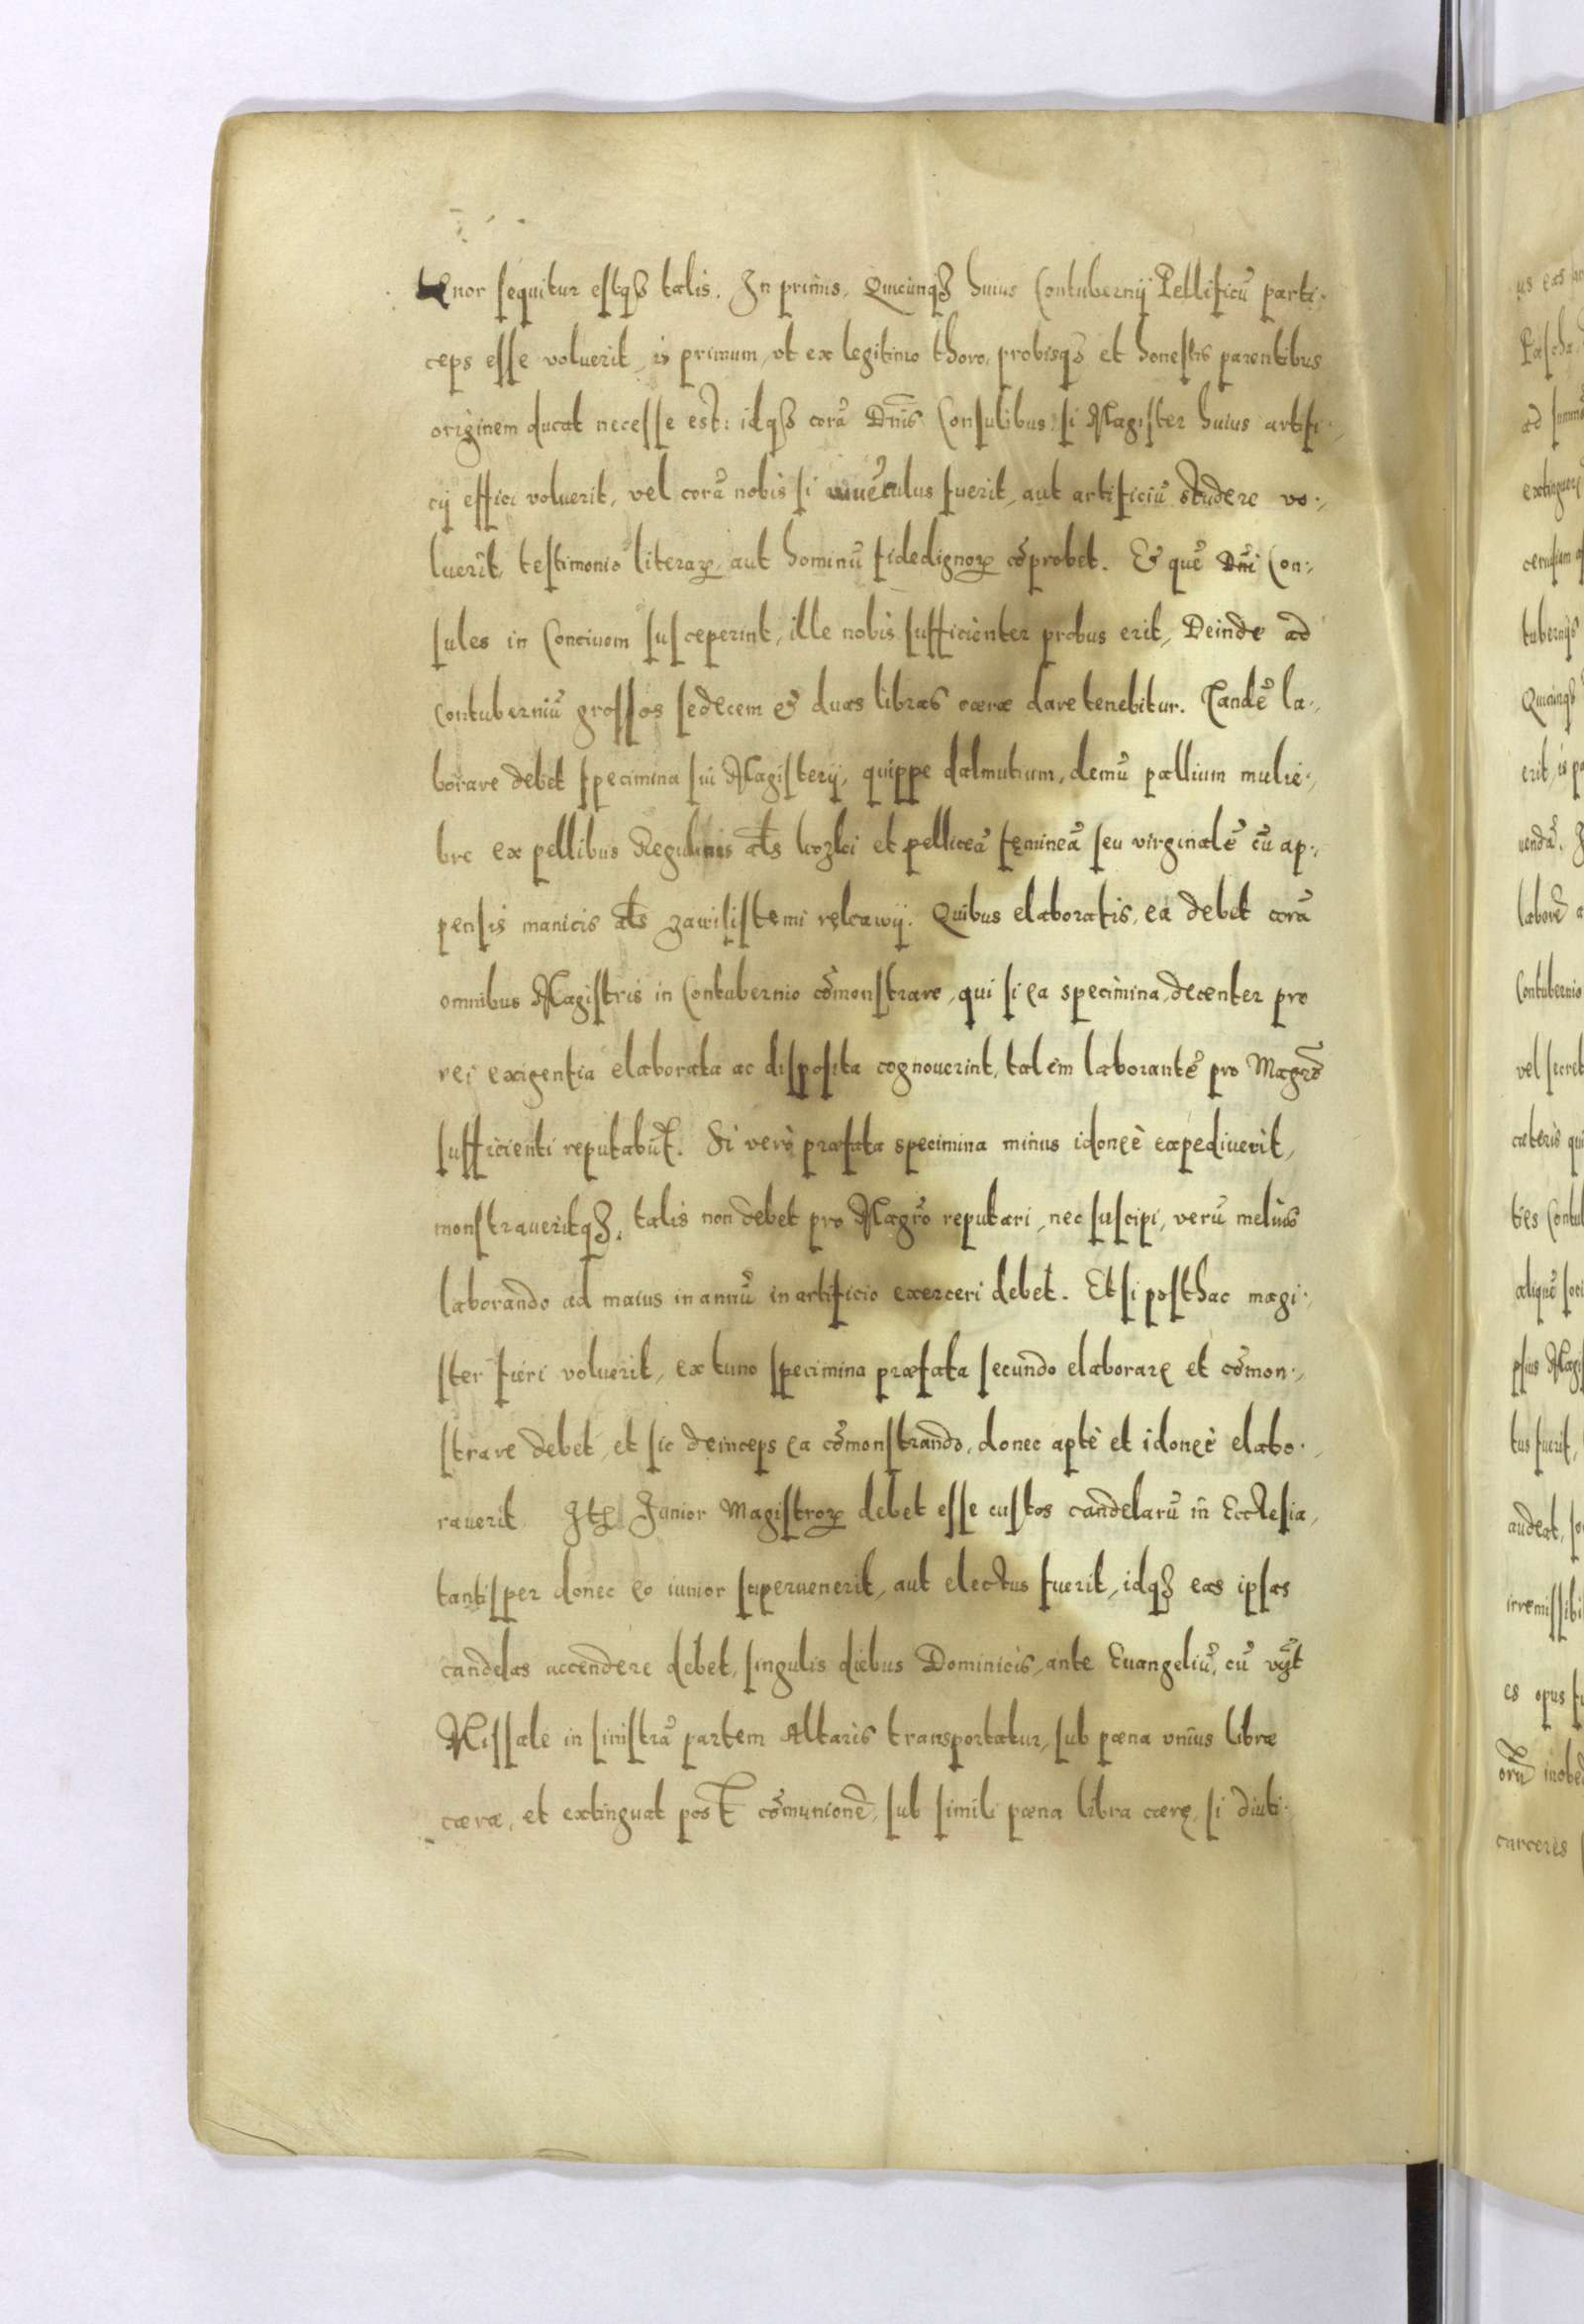 tenor sequitur estqꝫ talis. In primis, Quicunqꝫ huius Contubernij Pellificũ parti:
ceps esse voluerit, is primum, vt ex legitimo thoro, probisqꝫ et honestis parentibus
originem ducat necesse est: idqꝫ corã Dñis Consulibus, si Magister huius artifi:
cij effici voluerit, vel corã nobis si fuerit, aut artificiũ studere vo:
luerit, testimonio literaꝝ, aut hominũ fidedignoꝝ cõprobet. Et quẽ Dñi Con:
sules in Conciuem susceperint, ille nobis sufficienter probus erit, Deinde ad
contuberniũ grossos sedecem & duas libras cæræ dare tenebitur. Tandẽ la:
borare debet specimina sui Magisterij, quippe dalmutium, demũ pallium mulie:
bre ex pellibus als kozki et pelliceã fęmineã seu virginalẽ cũ ap:
pensis manicis als zawilistemi rękawy. Quibus elaboratis, ea debet corã
omnibus Magistris in Contubernio cõmonstrare, qui si ea specimina, decenter pro
rei exigentia elaborata ac disposita cognouerint, talem laborantẽ pro Magr̃o
sufficienti reputabũt. Si verò præfata specimina minus idoneè expediuerit,
monstraueritqꝫ, talis non debet pro Magr̃o reputari, nec suscipi, verũ melius
laborando ad maius in annũ in artificio exerceri debet. Et si posthac magi:
ster fieri voluerit, ex tunc specimina præfata secundo elaborare et cõmon:
strare debet, et sic deinceps ea cõmonstrando, donec aptè et idoneè elabo:
rauerit. Itẽ Junior Magistroꝝ debet esse custos candelarũ in Ecclesia,
tantisper donec eo iunior superuenerit, aut electus fuerit, idqꝫ eas ipsas
candelas accendere debet, singulis diebus Dominicis, ante Euangeliũ, cũ
Missale in sinistrã partem Altaris transportatur, sub pœna vnius libræ
cæræ, et extinguat post cõmunionẽ, sub simili pœna libra cærę, si diuti: